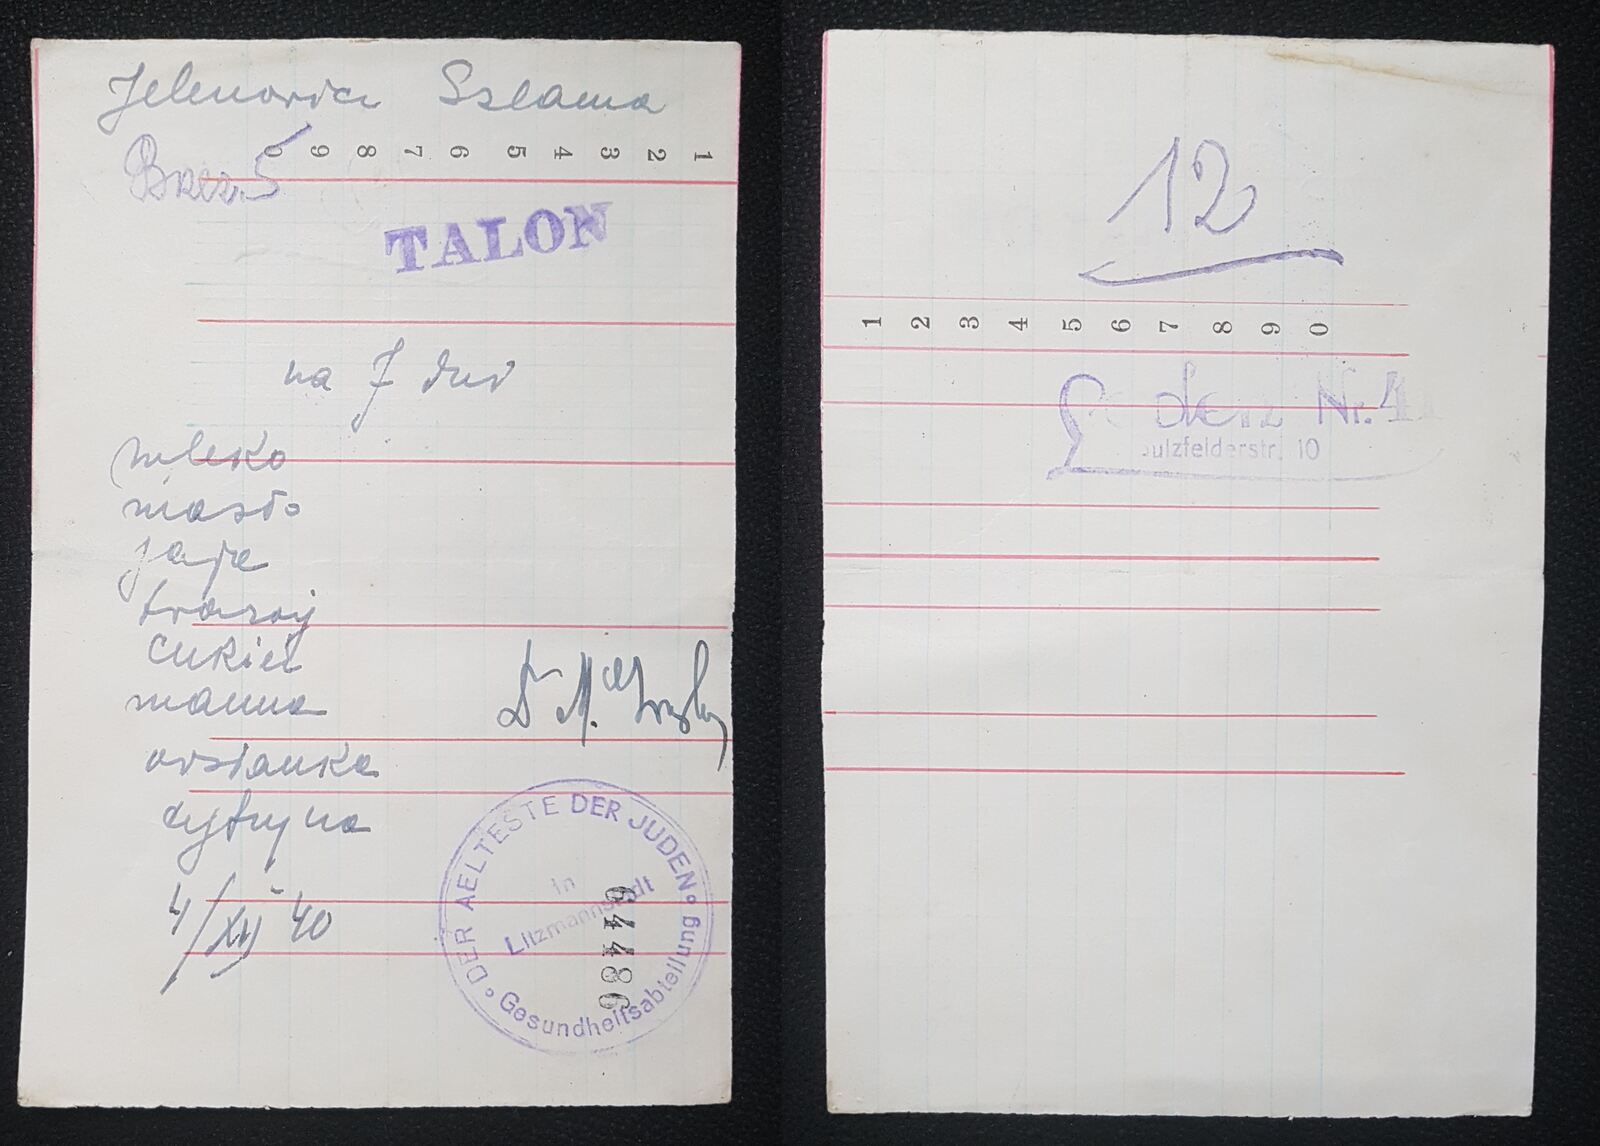 Jelenowicz Szlama
Brzez. 5
0 9 8 7 6 5 4 3 2 1
TALON
na 7 dni
mleko
masło
jaja
twaróg
cukier
manna
owsianka
cytryna
Dr M.
4/XII 40
DER AELTESTE DER JUDEN
in
Litzmannstadt
Gesundheitsabteilung
64486
12
1 2 3 4 5 6 7 8 9 0
Nr. 4
ulzfelderstr. 10